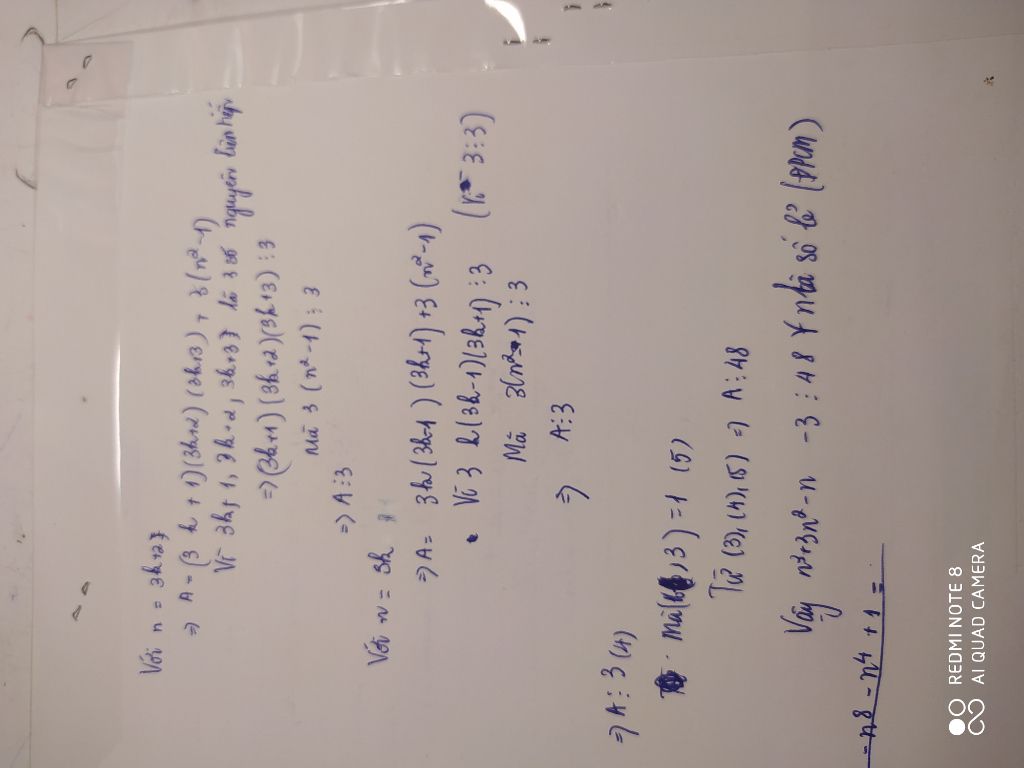 Với n = 3k+2
⇒ A = (3k+1)(3k+2)(3k+3) + 3(n²-1)
Vì 3k+1, 3k+2, 3k+3 là 3 số nguyên liên tiếp
⇒ (3k+1)(3k+2)(3k+3) ⋮ 3
Mà 3(n²-1) ⋮ 3
⇒ A ⋮ 3
Với n = 3k
⇒ A = 3k(3k-1)(3k+1) + 3(n²-1)
Vì 3k(3k-1)(3k+1) ⋮ 3 (Vì 3 ⋮ 3)
Mà 3(n²-1) ⋮ 3
⇒ A ⋮ 3
⇒ A ⋮ 3 (4)
Mà ( , 3) = 1 (5)
Từ (3), (4), (5) ⇒ A ⋮ 48
Vậy n³+3n²-n -3 ⋮ 48 ∀ n là số lẻ (ĐPCM)
- n8 - n⁴ + 1 =
REDMI NOTE 8
AI QUAD CAMERA